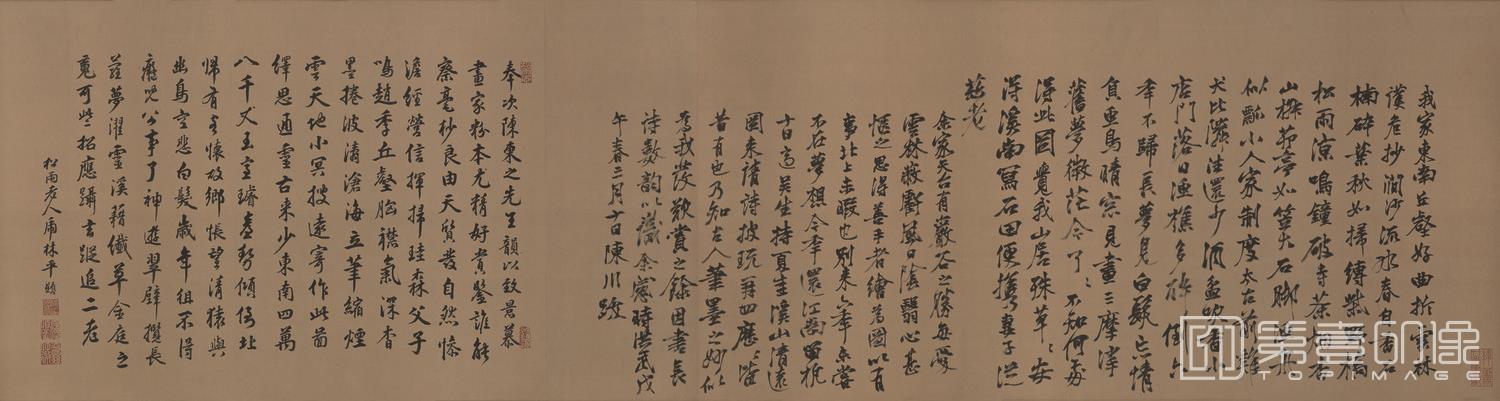 我家東南丘壑好曲折雲林
僕危抄澗沙流水春自香石
楠碎葉秋如掃縛柴
松雨涼鳴鐘破寺茶
山橾茆亭如笠大石脚
似瓢小人家制度太古前雞
犬比鄰往還少酒盃香小
店門落日漁樵多醉倒六
年不歸長夢見白髮亡情
負魚鳥晴窓見畫三摩挲
舊夢微茫今了〻不知何處
得此圖覺我山居殊草〻安
得溪南寫石田便攜妻子從
茲老
余家天台有巖谷之勝每愛
雲林蔽虧風日陰翳心甚
愜之思得善手者繪為圖以有
事北上未暇也別來六年未嘗
不在夢想今年還江南留杭
十日適吳生持夏圭溪山清遠
圖來請詩披玩再四歷〻皆
昔有也乃知古人筆墨之妙似
為我發歎賞之餘因書長
詩數韻以識余意時洪武戊
午春三月十日陳川跋
奉次陳東之先生韻以致景慕
畫家粉本尤精好賞鑒誰能
察毫杪良由天質發自然慘
澹經營信揮掃珪森父子
鳴趙季丘壑胸襟氣深杳
墨捲波濤滄海立筆縮煙
雲天地小冥搜遠寄作此啚
繹思通靈古來少東南四萬
八千丈玉室璿臺勢傾倒
歸有懷故鄉悵望清猿與
幽鳥空悲白髮歲年徂不得
癡兒公事了神遊翠壁攬長
蘿夢濯靈溪藉纖草金庭之
竟可些招應躡玄蹤追二老
松雨老人虎林平顯
第壹印像
TOPIMAGE